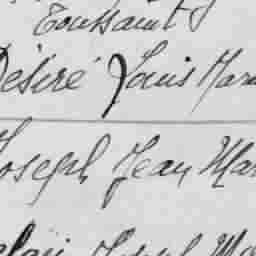 Toussaint J
Désiré Louis Mar
Joseph Jean Mar